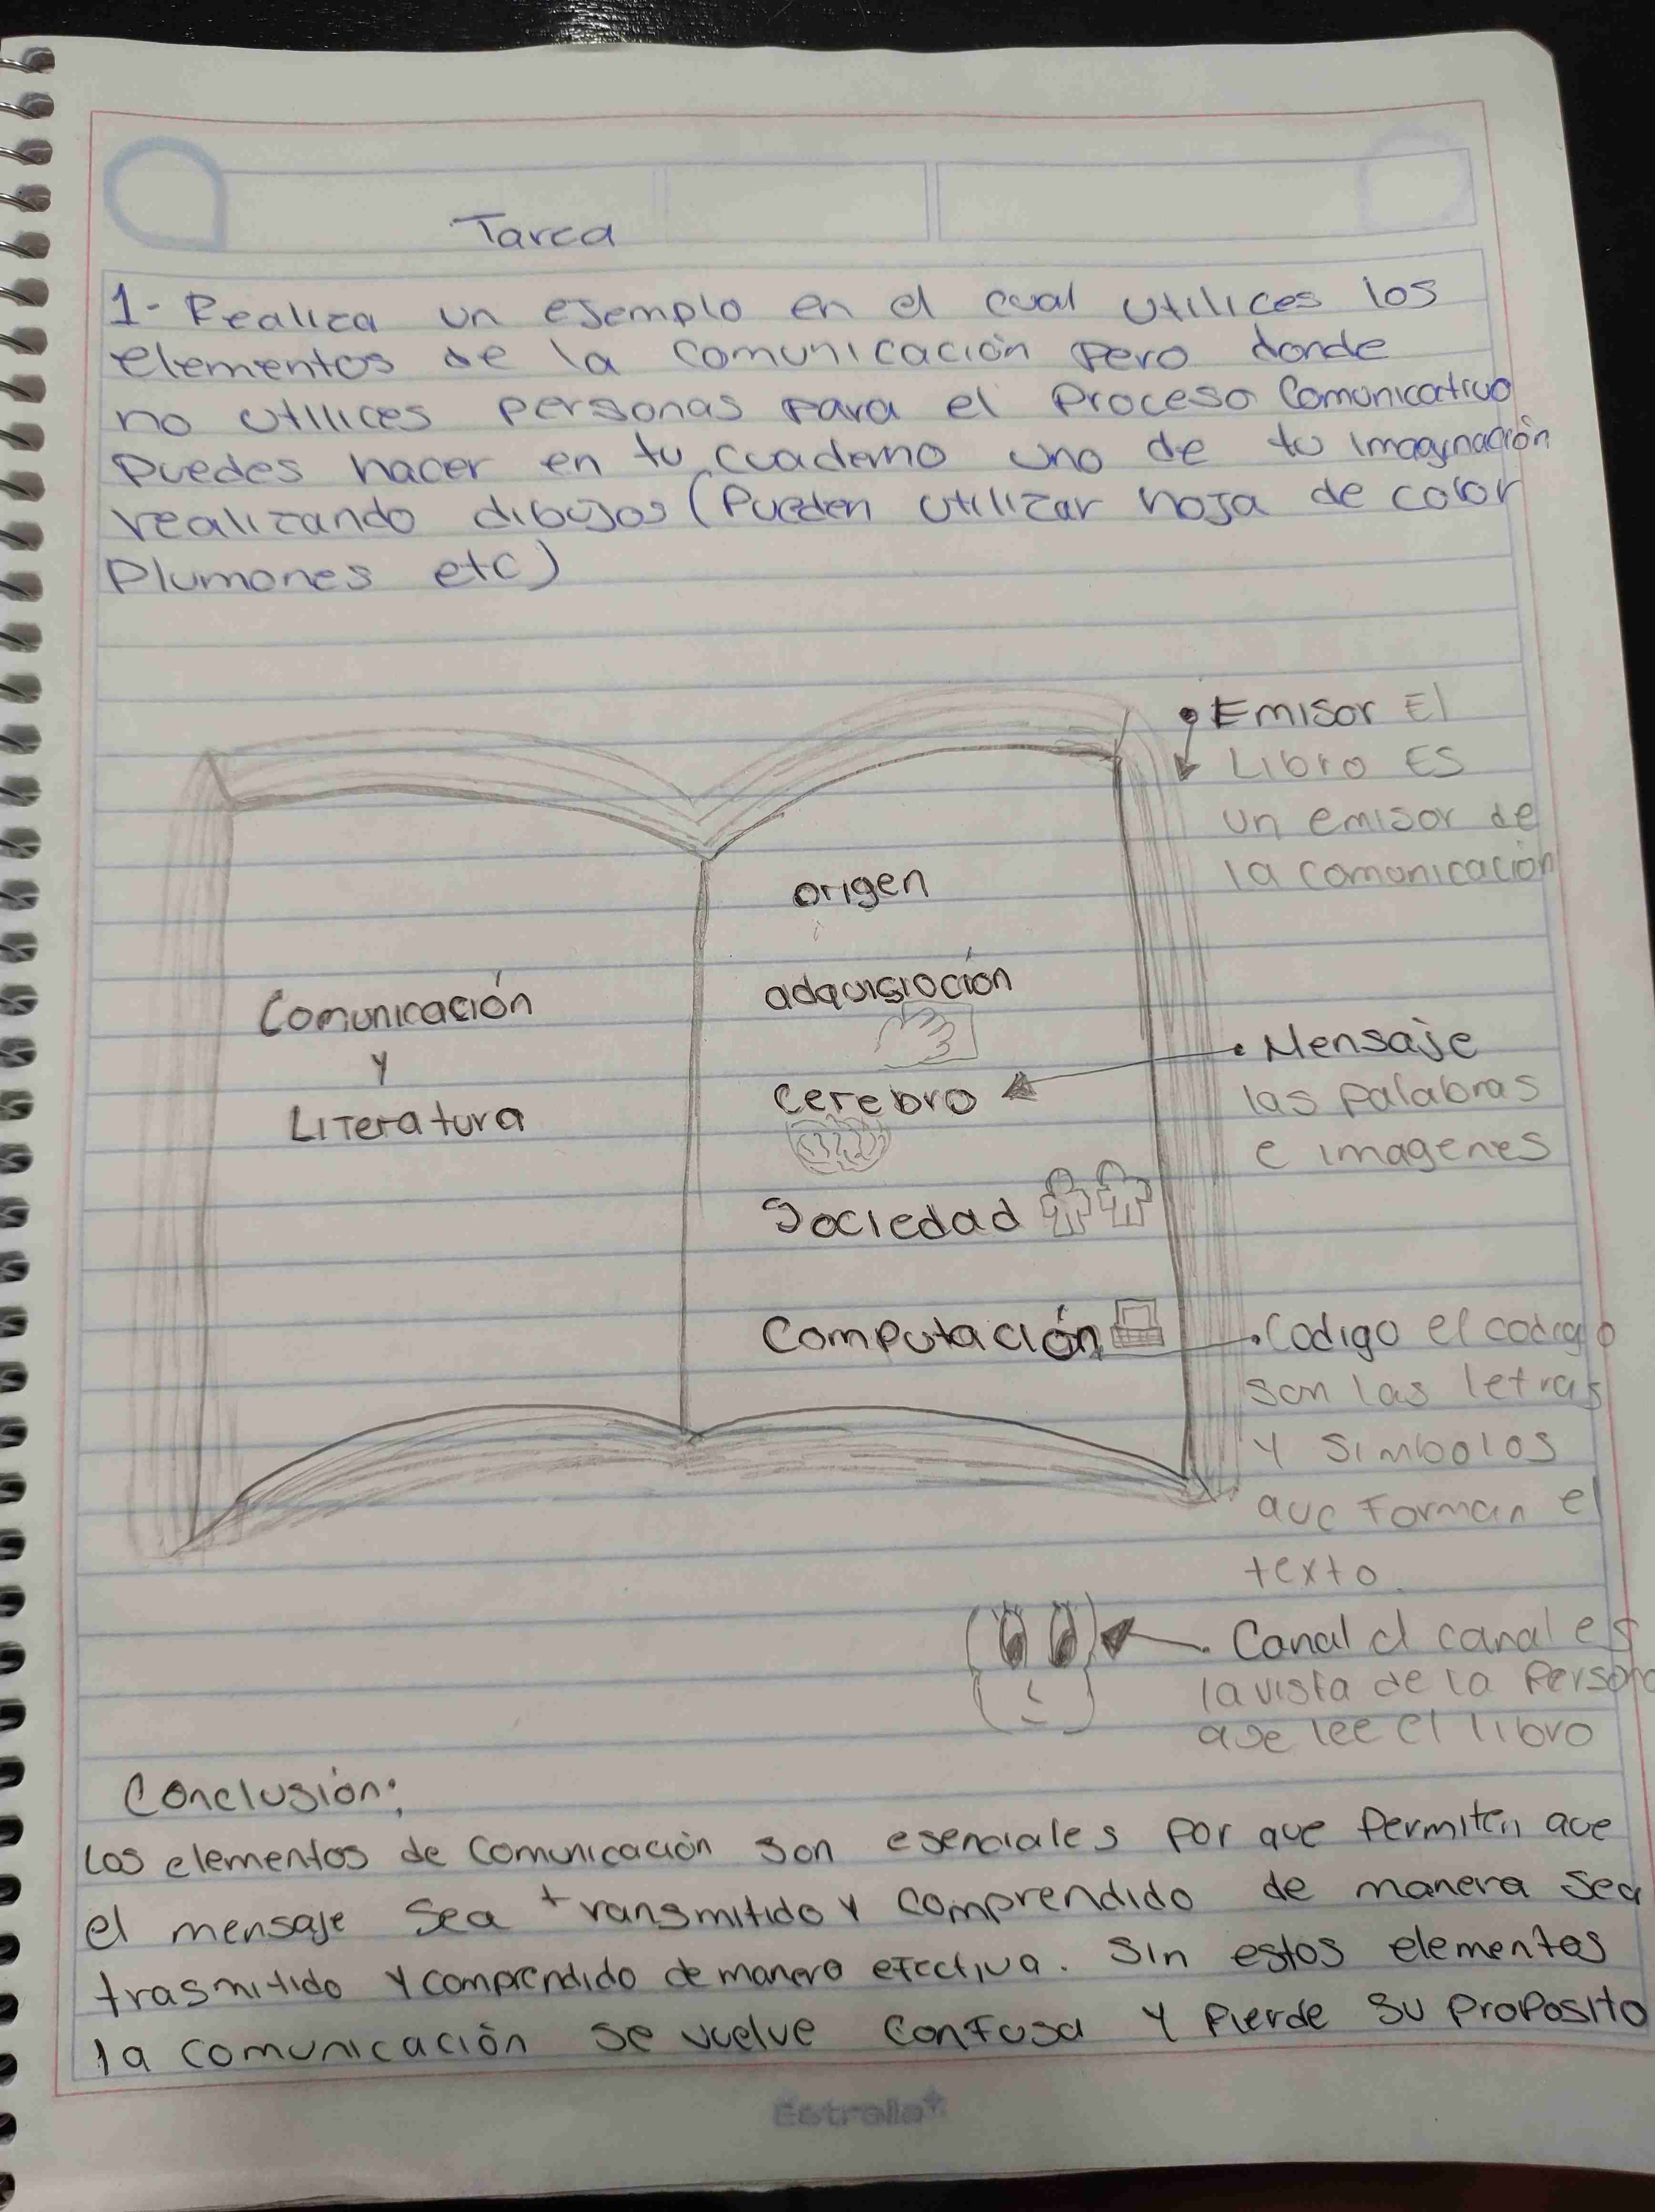 Tarea
1- Realiza un ejemplo en el cual utilices los
elementos de la comunicación pero donde
no utilices personas para el proceso Comunicativo
puedes hacer en tu cuaderno uno de tu imaginación
realizando dibujos (Pueden utilizar hoja de color
Plumones etc)
Comunicación
y
Literatura
origen
adquisioción
Cerebro
Sociedad
Computación
• Emisor El
Libro Es
un emisor de
la comunicación
• Mensaje
las palabras
e imagenes
. Codigo el codigo
son las letras
y simbolos
que Forman el
texto.
. Canal el canal es
la vista de la persona
que lee el libro
Conclusión:
Los elementos de comunicación son esenciales por que permiten que
el mensaje sea transmitido y comprendido de manera sea
trasmitido y comprendido de manera efectiva. Sin estos elementos
la comunicación se vuelve confusa y pierde su proposito
Estrella